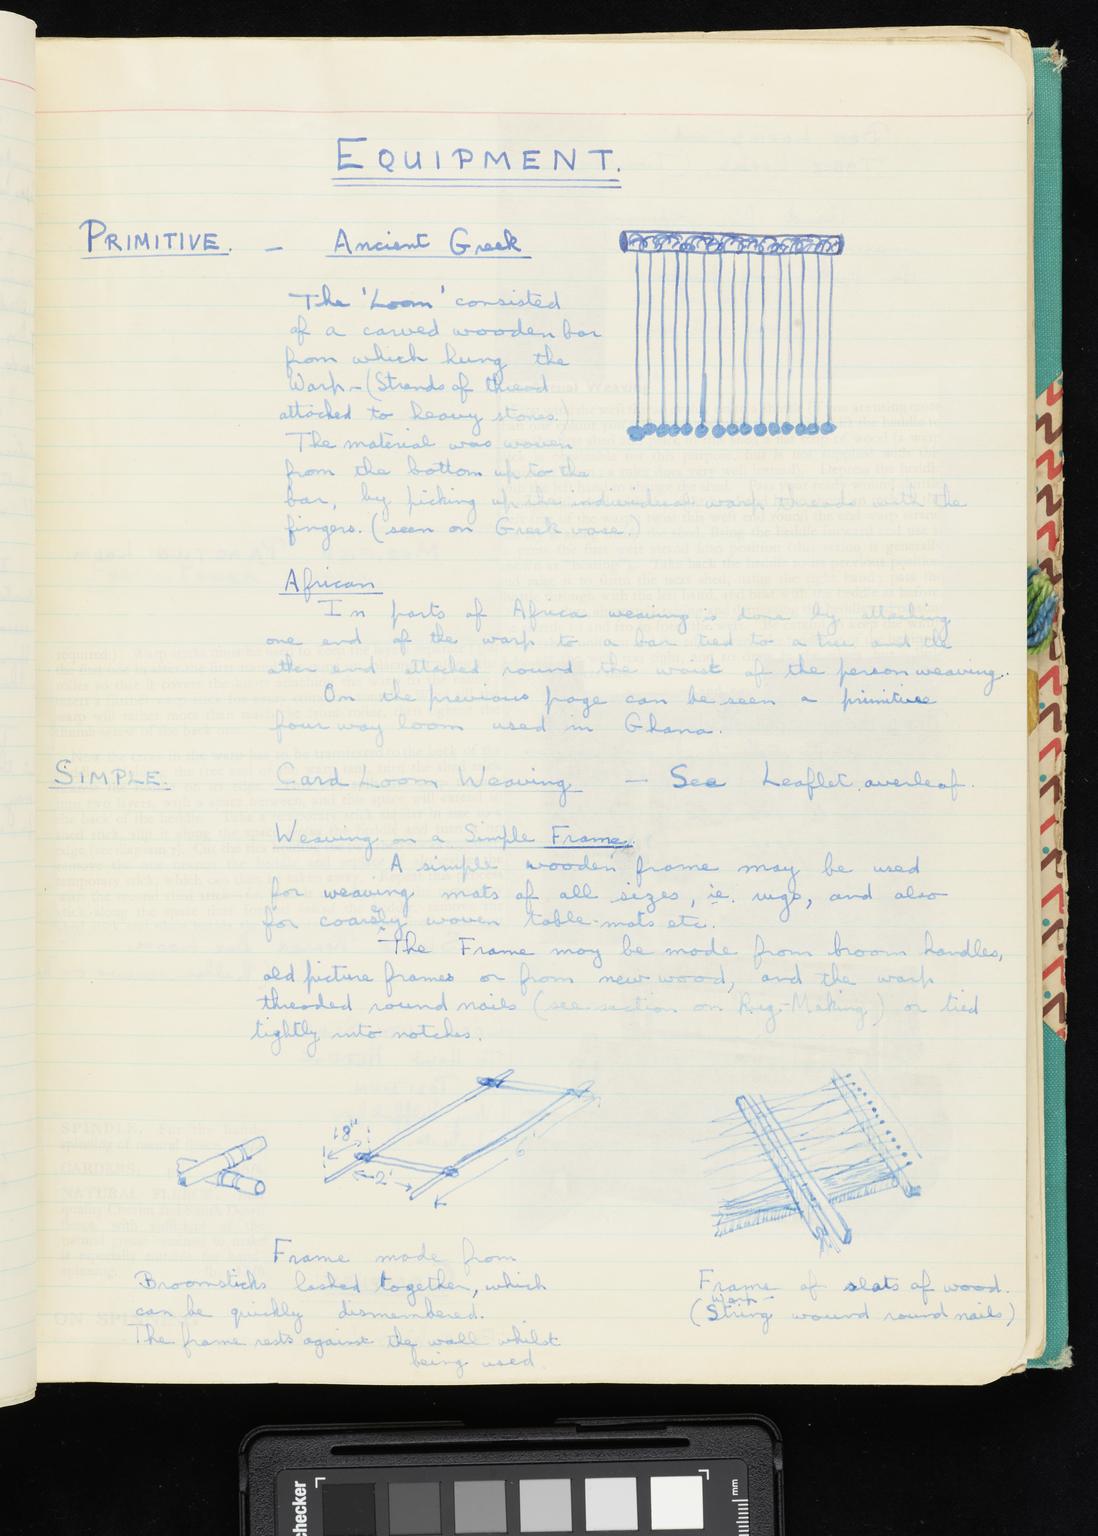 EQUIPMENT.
PRIMITIVE. - Ancient Greek
The 'Loom' consisted
of a carved wooden bar
from which hung the
Warp - (Strands of thread
attached to heavy stones.)
The material was woven
from the bottom up to the
bar, by picking up the individual warp threads with the
fingers. (seen on Greek vase.)
African
In parts of Africa weaving is done by attaching
one end of the warp to a bar tied to a tree and the
other end attached round the waist of the person weaving.
On the previous page can be seen a primitive
four way loom used in Ghana.
SIMPLE. Card Loom Weaving - See Leaflet overleaf.
Weaving on a Simple Frame.
A simple wooden frame may be used
for weaving mats of all sizes, ie. rugs, and also
for coarsely woven table-mats etc.
The Frame may be made from broom handles,
old picture frames or from new wood, and the warp
threaded round nails (see section on Rug-Making) or tied
tightly into notches.
18"
2'
6'
Frame made from
Broomsticks lashed together, which
can be quickly dismembered.
The frame rests against the wall whilst
being used.
Frame of slats of wood.
Warp -
(String wound round nails)
checker
mm